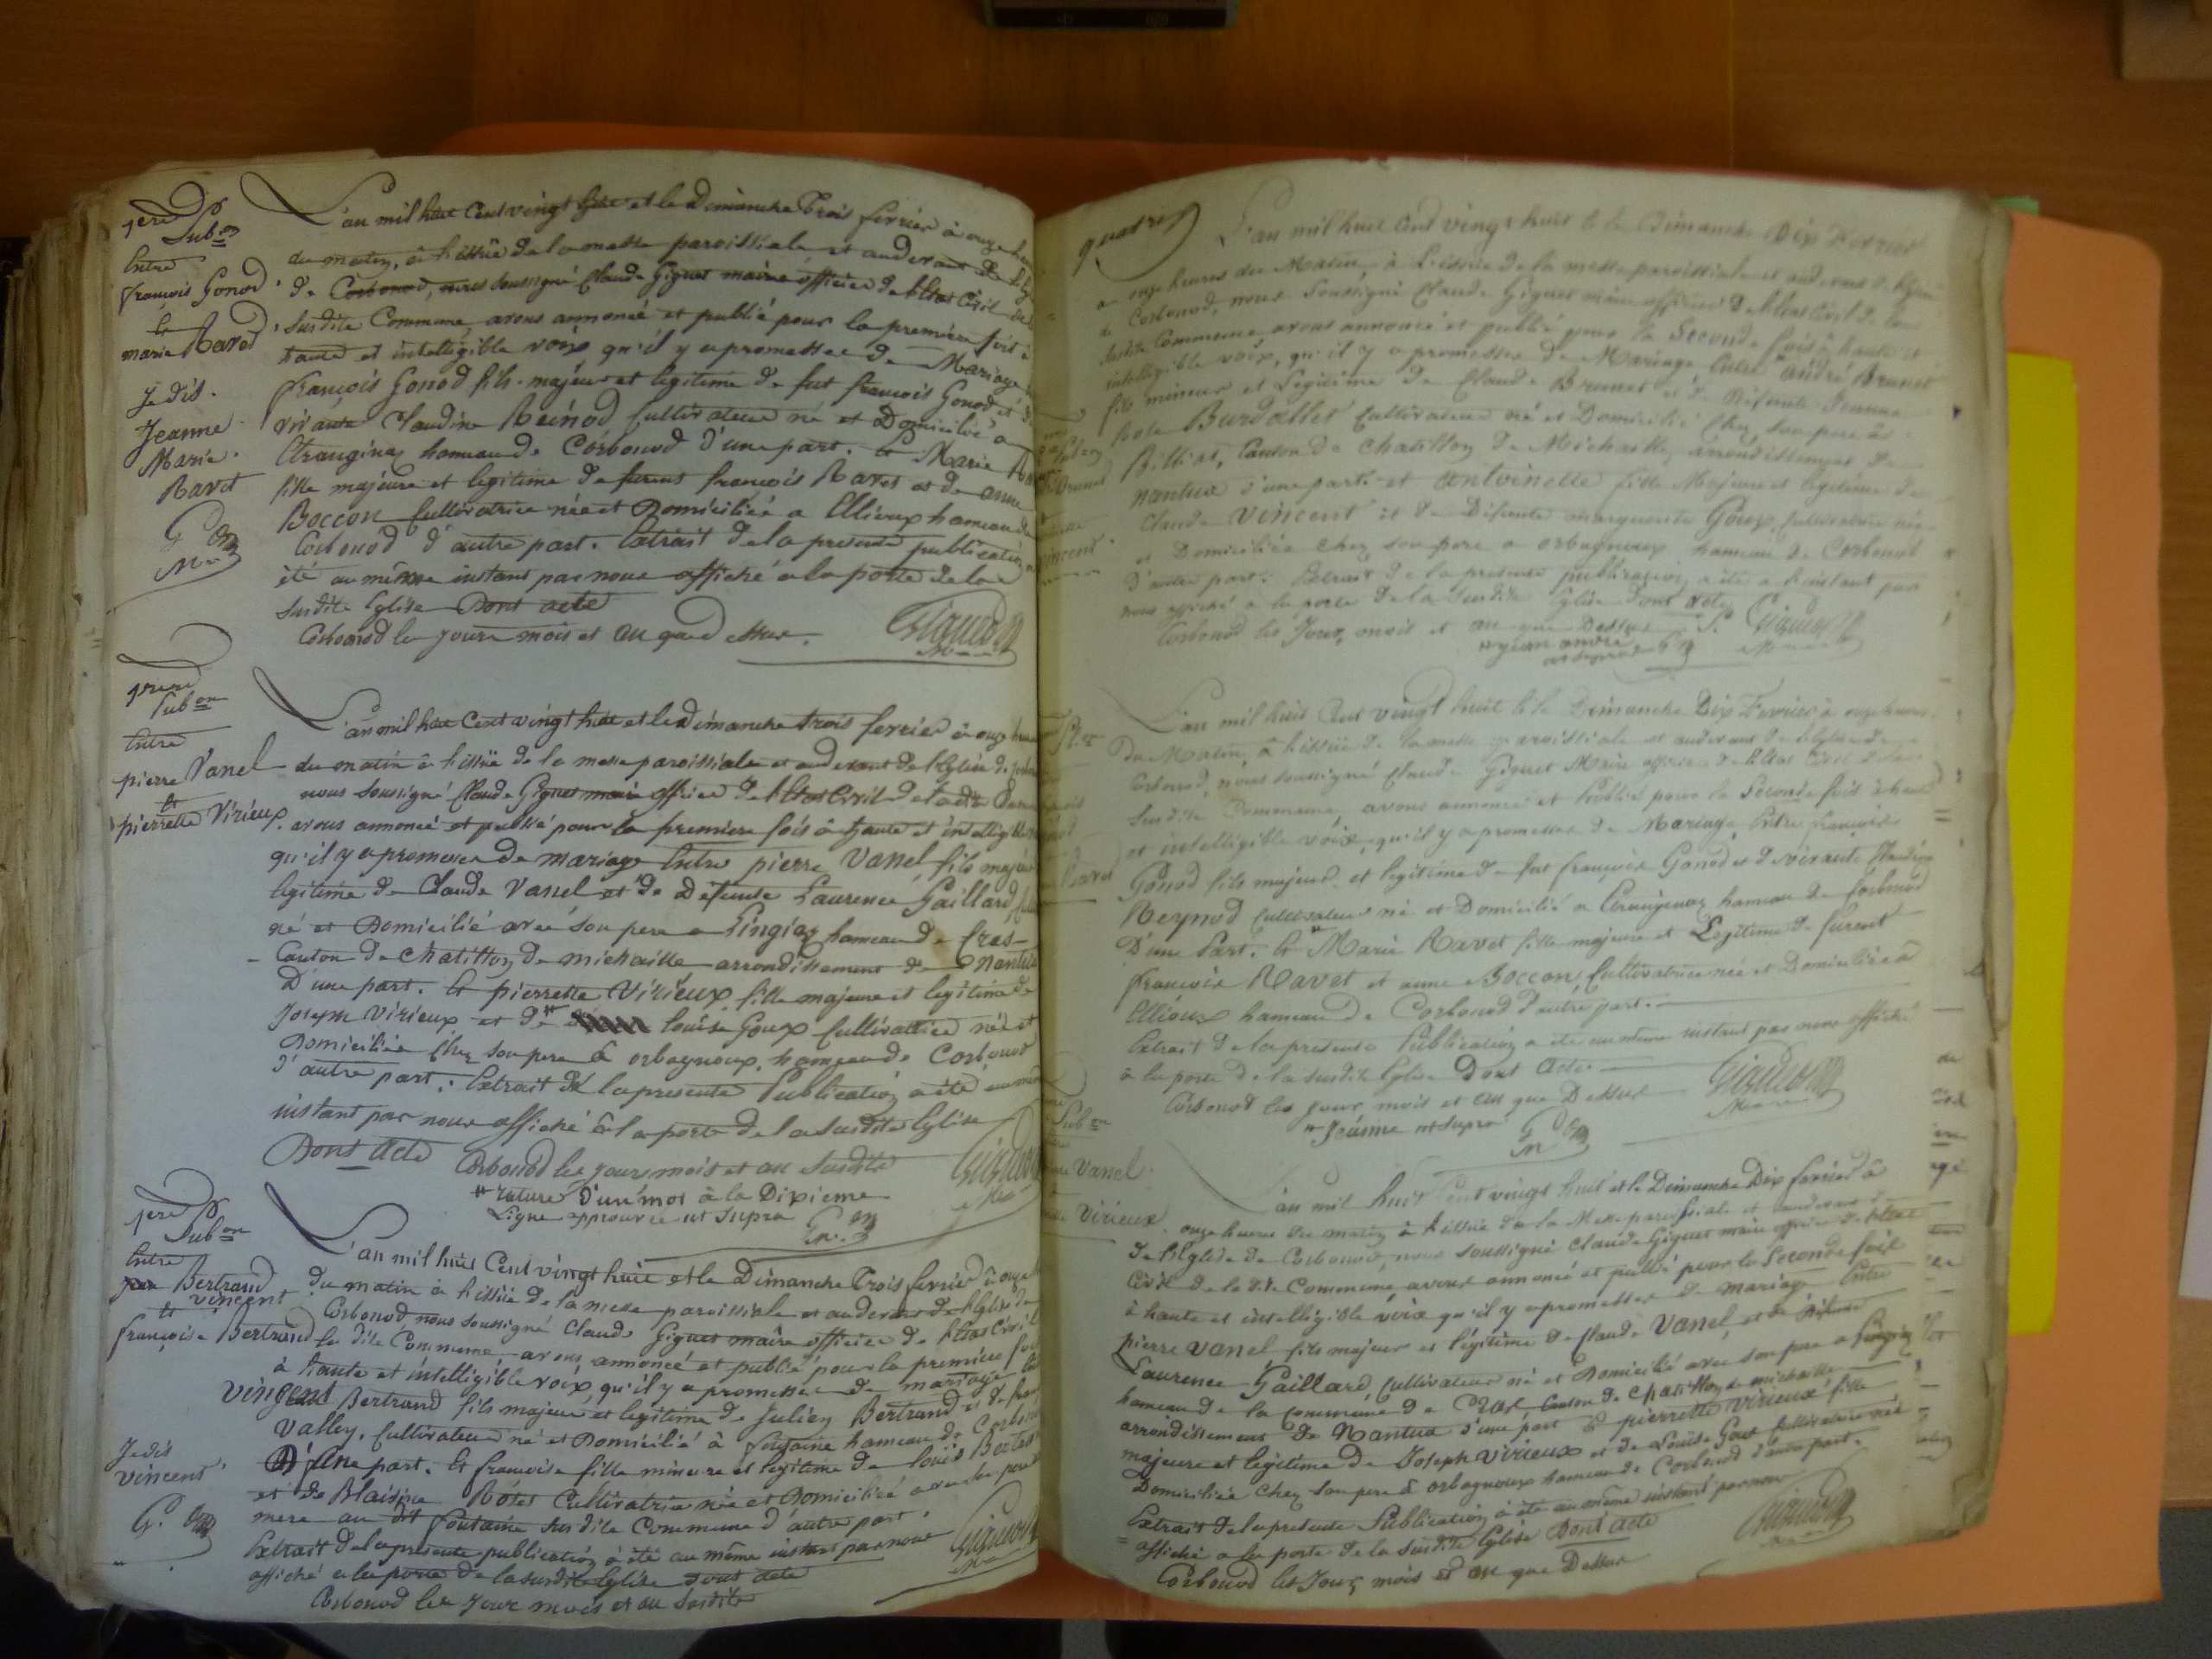 1ere
Pub.on
Entre
françois Gonod
et
marie Ravet
Je dis.
Jeanne
Marie.
Ravet
L'an mil huit Cent vingt huit et le Dimanche Trois fevrier à onze
du matin, à l'issüe de la messe paroissiale et audevant de
de Corbonod, nous soussigné Claude Giguet maire officier de l'Etat Civil de
susdite Commune, avons annoncé et publié pour la première fois à
haute et intelligible voix qu'il y a promesses de Mariage
françois Gonod fils majeur et legitime de fut françois Gonod et de
vivante Claudine Reinod Cultivateur né et Domicilié à
hameau de Corbonod d'une part. Et Marie
fille majeure et legitime de furent françois Ravet et de anne
Boccon Cultivatrice née et Domiciliée a Ellioux hameau de
Corbonod d'autre part. Extrait de la presente publication
été au même instant par nous affiché a la porte de la
susdite Eglise Dont acte
Corbonod le jours mois et an que dessus.
1ere
Pub.on
Entre
pierre Vanel
et
pierrette Virieux
L'an mil huit Cent vingt huit et le Dimanche trois fevrier à onze
du matin à l'issüe de la messe paroissiale et audevant de l'Eglise de
nous soussigné Claude Giguet maire officier de l'Etat Civil de la dte
avons annoncé et publié pour la première fois à haute et intelligible
qu'il y a promesses de mariage Entre pierre Vanel fils majeur
legitime de Claude Vanel et de Défunte Laurence Gaillard,
né et Domicilié avec son pere a hameau de Cras
Canton de Chatillon de michaille arrondissement de Nantua
D'une part. Et pierrette Virieux fille majeure et legitime de
Joseph Virieux et de louise Goux Cultivatrice née et
Domiciliée Chez son pere à orbagnoux, hameau de Corbonod
d'autre part. Extrait de la presente Publication a été au même
instant par nous affiché à la porte de la susdite Eglise
Dont acte
Corbonod les jours mois et an susdits
rature d'un mot à la Dixieme
Ligne approuvée ut supra
1ere
Pub.on
Entre
Bertrand
vincent
et
françoise Bertrand
L'an mil huit Cent vingt huit et le Dimanche Trois fevrier à onze
du matin à l'issüe de la messe paroissiale et audevant de l'Eglise de
Corbonod, nous soussigné Claude Giguet maire officier de l'Etat Civil
la dite Commune avons annoncé et publié pour la premiere fois
à haute et intelligible voix qu'il y a promesses de mariage
Vincent Bertrand fils majeur et legitime de Julien Bertrand et de
Vallery, Cultivateur né et Domicilié à fontaine hameau de Corbonod
D'une part. Et françoise fille mineure et legitime de louis
et de Blaisine Cultivatrice née et Domiciliée avec
mere au dit fontaine susdite Commune d'autre part.
Extrait de la presente publication à été au même instant par nous
affiché a la porte de la susdite Eglise dont acte
Corbonod les jour mois et an susdits
Je dis
vincent.
L'an mil huit Cent vingt huit & le Dimanche Dix Fevrier
a onze heures du Matin, à L'issüe de la messe paroissiale et audevant de l'Eglise
de Corbonod, nous Soussigné Claude Giguet maire officier de l'Etat Civil de la
susdite Commune avons annoncé et publié pour la Seconde fois à haute et
intelligible voix, qu'il y a promesses de Mariage Entre andré Brunet
fils mineur et Legitime de Claude Brunet et de Défunte Jeanne
Burdallet Cultivateur né et Domicilié Chez son pere à
Billiat, Canton de Chatillon de Michaille, arrondissement de
nantua d'une part et Antoinette fille Majeure et legitime de
Claude Vincent et de Défunte marguerite Goux, Cultivatrice née
et Domiciliée Chez son pere a orbagnoux hameau de Corbonod
D'autre part. Extrait de la presente publication a été a l'instant par
nous affiché a la porte de la susdite Eglise Dont acte
Corbonod les Jour, mois et an que Dessus
L'an mil huit Cent vingt huit & le Dimanche Dix Fevrier à onze heures
du Matin, à l'issüe de la messe paroissiale et audevant de l'Eglise de
Corbonod, nous soussigné Claude Giguet Maire officier de l'Etat Civil de la
susdite Commune, avons annoncé et Publié pour la Seconde fois à haute
et intelligible voix, qu'il y a promesses de Mariage Entre françois
Gonod fils majeur et legitime de fut françois Gonod et de vivante Claudine
Reynod Cultivateur né et Domicilié a hameau de Corbonod
D'une Part. Et Marie Ravet fille majeure et Legitime de furent
françois Ravet et anne Boccon, Cultivatrice née et Domiciliée à
Ellioux hameau de Corbonod d'autre part.
Extrait de la presente Publication a été au même instant par nous affiché
à la porte de la susdite Eglise Dont acte.
Corbonod les jour mois et an que Dessus
Jeanne ut supra
Vanel
Virieux
L'an mil huit Cent vingt huit et le Dimanche Dix fevrier à
onze heures du matin à l'issüe de la Messe paroissiale et audevant
de l'Eglise de Corbonod, nous soussigné Claude Giguet maire officier de l'Etat
Civil de la dite Commune, avons annoncé et publié pour la Seconde fois
à haute et intelligible voix qu'il y a promesses de mariage Entre
pierre Vanel fils majeur et légitime de Claude Vanel, et de Défunte
Laurence Gaillard, Cultivateur né et Domicilié avec son pere a
hameau de la commune de Cras, Canton de Chatillon de michaille
arrondissement de Nantua d'une part & pierrette Virieux fille
majeure et legitime de Joseph Virieux et de Louise Goux Cultivatrice née
Domiciliée Chez son pere à orbagnoux hameau de Corbonod d'autre part.
Extrait de la presente Publication, à été au même instant par nous
affiché a la porte de la susdite Eglise Dont acte
Corbonod les Jour, mois et an que Dessus